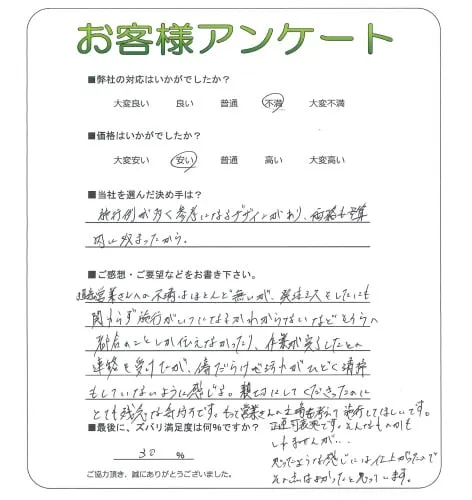 お客様アンケート
■弊社の対応はいかがでしたか？
大変良い 良い 普通 不満 大変不満
■価格はいかがでしたか？
大変安い 安い 普通 高い 大変高い
■当社を選んだ決め手は？
施行例が多く参考になるデザインがあり、価格も予算
内に収まったから。
■ご感想・ご要望などをお書き下さい。
営業さんへの不満はほとんど無いが、発注された
関わらず施行がいつになるかわからないなどそちらの
都合のことしか伝えなかったり、作業が完了したとの
連絡を受けたが、傷だらけで汚れがひどく清掃
もしていないように感じる。親切にしてくださったのに
とても残念な気持ちです。もっと営業さんの立場も考えて施行してほしいです。
正直可哀想です。そんなものかも
しれませんが…
思ったような感じには仕上がったので
その点はよかったと思っています。
■最後に、ズバリ満足度は何%ですか？
30 %
ご協力頂き、誠にありがとうございました。